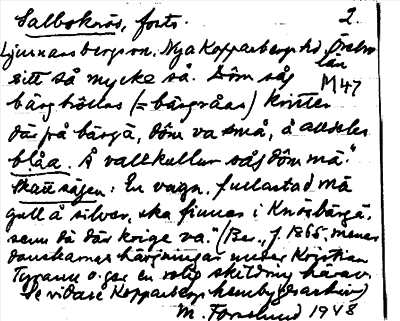 Salboknös, forts. 2.
Ljusnarsbergsn. Nya Kopparbergs hd, Örebro län
sitt så mycke så. Dôm såg M47
bärgtrôllas (= bärgråas) kritter
där på bärgä, dôm va små, å alldeles
blåa. Å vallkullur såg dôm mä."
Skattsägen: En vagn, fullastad mä
gull å silver, ska finnas i Knösbärgä,
senn dä där krige va." (Ber., f. 1865, menar
danskarnas härjningar under Kristian
Tyrann o. ger en rolig skildring härav.
Se vidare Kopparbergs hembygdsarkiv)
M. Forslund 1948